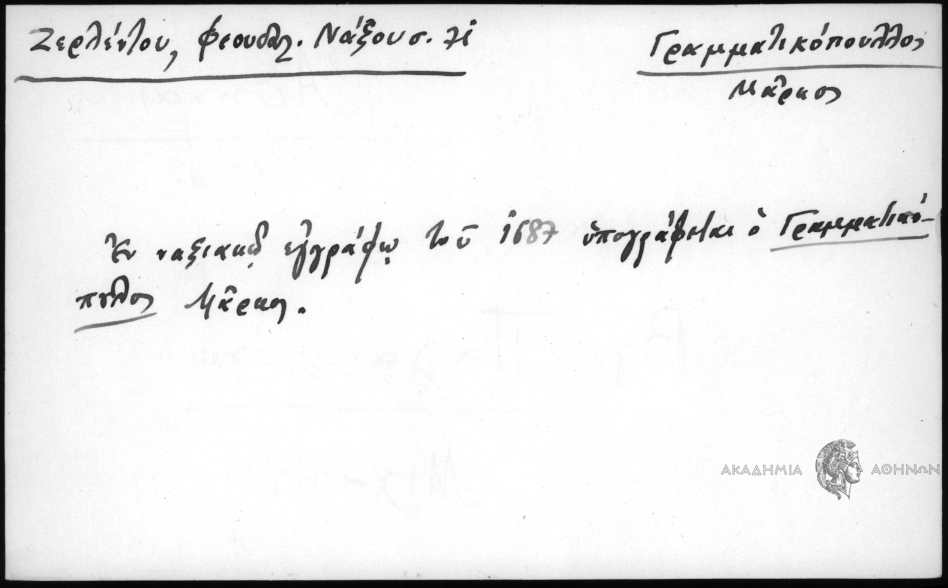 Ζερλέντου, Φεουδαλ. Νάξου σ. 71
Γραμματικόπουλλος
Μᾶρκος
Ἐν ναξιακῷ ἐγγράφῳ τοῦ 1687 ὑπογράφεται ὁ Γραμματικό-
πυλος Μᾶρκος.
ΑΚΑΔΗΜΙΑ ΑΘΗΝΩΝ